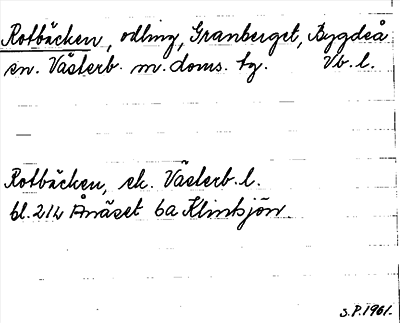 Rotbäcken, odling, Granberget, Bygdeå
sn. Västerb. m. doms. tg. Vb. l.
Rotbäcken, ek. Västerb. l.
bl. 212 Ånäset 6a Klinksjön.
S.P. 1961.